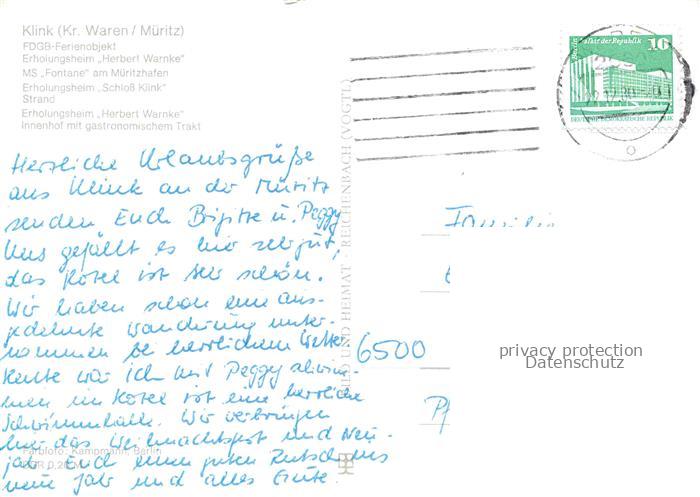 Klink (Kr. Waren / Müritz)
FDGB-Ferienobjekt
Erholungsheim „Herbert Warnke"
MS „Fontane" am Müritzhafen
Erholungsheim „Schloß Klink"
Strand
Erholungsheim „Herbert Warnke"
Innenhof mit gastronomischem Trakt
Herzliche Urlaubsgrüße
aus Klink an der Müritz
senden Euch Brigitte u. Peggy
Uns gefällt es hier sehr gut,
das Hotel ist sehr schön.
Wir haben schon eine aus-
gedehnte Wanderung unter-
nommen bei herrlichem Wetter
Heute war ich mit Peggy schwim-
men im Hotel ist eine herrliche
Schwimmhalle. Wir verbringen
hier das Weihnachtsfest und Neu-
jahr Euch einen guten Rutsch ins
neue Jahr und alles Gute.
Farbfoto: Kampmann, Berlin
DDR 0,20 M
BILD UND HEIMAT · REICHENBACH (VOGTL)
Berlin Palast der Republik
10
DEUTSCHE DEMOKRATISCHE REPUBLIK
Familie
6500
privacy protection
Datenschutz